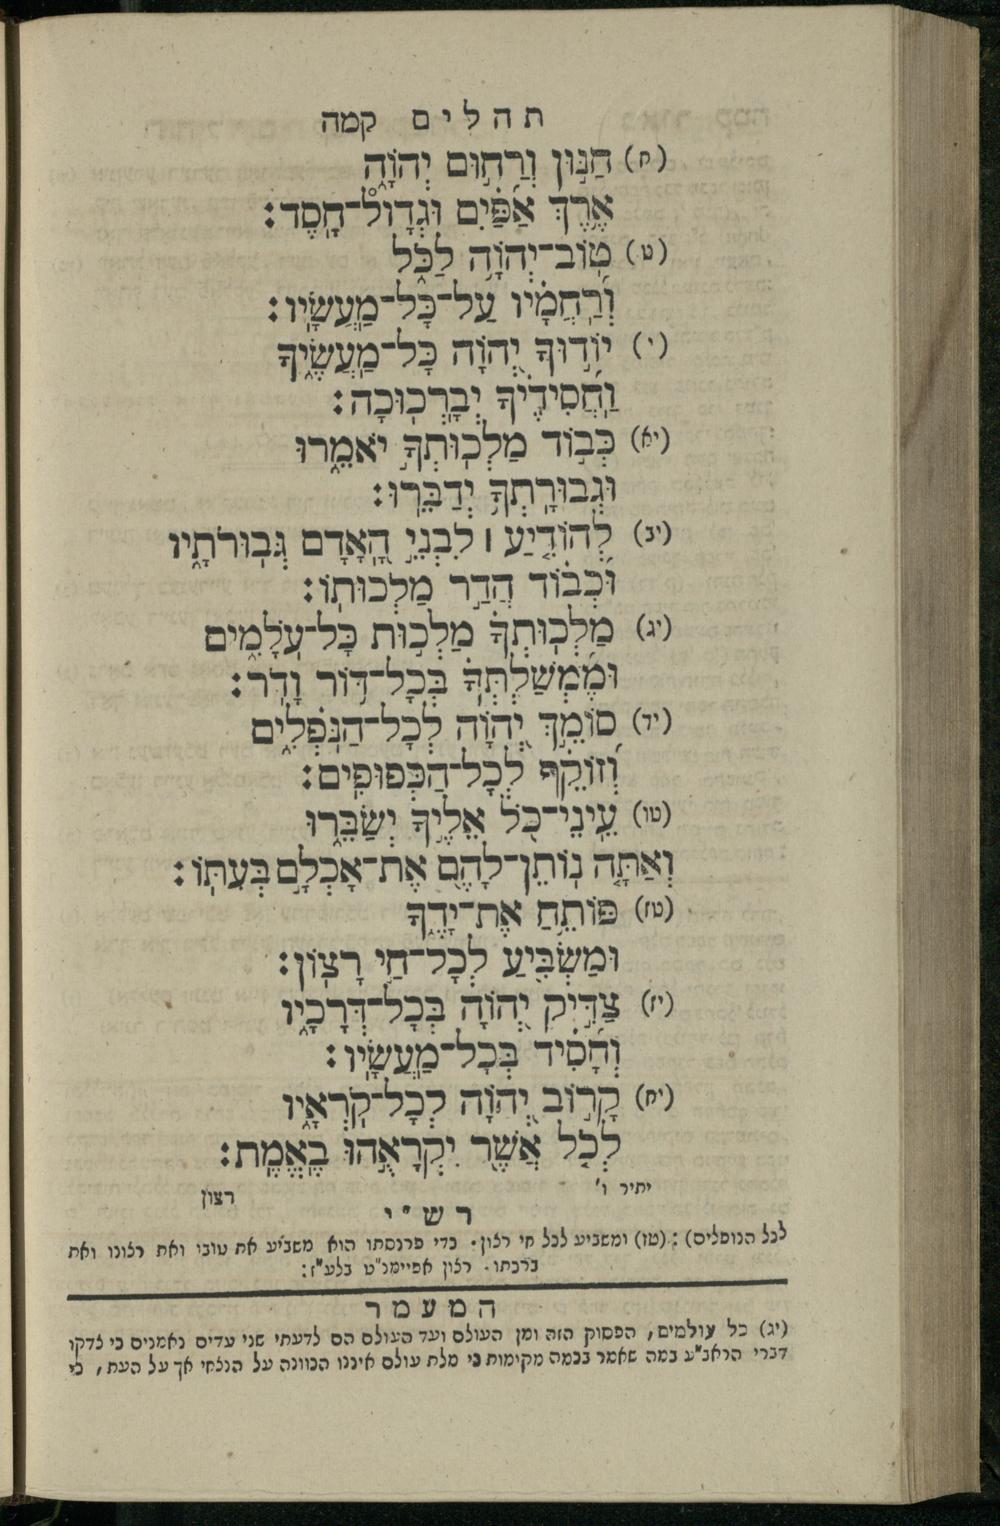 תהלים קמה
(ח) חַנּ֣וּן וְרַח֣וּם יְהוָ֑ה
אֶ֥רֶךְ אַ֝פַּ֗יִם וּגְדָול־חָֽסֶד׃
(ט) טֽוֹב־יְהוָ֥ה לַכֹּ֑ל
וְ֝רַחֲמָ֗יו עַל־כָּל־מַֽעֲשָֽׂיו׃
(י) יוֹד֣וּךָ יְ֭הוָה כָּל־מַֽעֲשֶׂ֑יךָ
וַ֝חֲסִידֶ֗יךָ יְבָרְכֽוּכָה׃
(יא) כְּב֣וֹד מַלְכֽוּתְךָ֣ יֹאמֵ֑רוּ
וּגְבוּרָֽתְךָ֥ יְדַבֵּֽרוּ׃
(יב) לְהוֹדִ֤יעַ ׀ לִבְנֵ֣י הָ֭אָדָם גְּבֽוּרֹתָ֑יו
וּ֝כְב֗וֹד הֲדַ֣ר מַלְכוּתֽוֹ׃
(יג) מַֽלְכֽוּתְךָ֗ מַלְכ֥וּת כָּל־עֹֽלָמִ֑ים
וּ֝מֶֽמְשַׁלְתְּךָ֗ בְּכָל־דּ֥וֹר וָדֽר׃
(יד) סוֹמֵ֣ךְ יְ֭הוָה לְכָל־הַנֹּֽפְלִ֑ים
וְ֝זוֹקֵ֗ף לְכָל־הַכְּפוּפִֽים׃
(טו) עֵֽינֵי־כֹ֭ל אֵלֶ֣יךָ יְשַׂבֵּ֑רוּ
וְאַתָּ֤ה נֽוֹתֵן־לָהֶ֖ם אֶת־אָכְלָ֣ם בְּעִתּֽוֹ׃
(טז) פּוֹתֵ֥חַ אֶת־יָדֶ֑ךָ
וּמַשְׂבִּ֖יעַ לְכָל־חַ֣י רָצֽוֹן׃
(יז) צַדִּ֣יק יְ֭הוָה בְּכָל־דְּרָכָ֑יו
וְ֝חָסִ֗יד בְּכָל־מַֽעֲשָֽׂיו׃
(יח) קָר֣וֹב יְ֭הוָה לְכָל־קֹֽרְאָ֑יו
לְכֹ֤ל אֲשֶׁ֖ר יִקְרָאֻ֣הוּ בֶֽאֱמֶֽת׃
יתיר ו'
רצון
רש"י
לכל הנופלים): (טז) ומשביע לכל חי רצון. כדי פרנסתו הוא משביע את טובו ואת רצונו ואת
ברכתו. רצון אפיימנ"ט בלע"ז:
המעמר
(יג) כל עולמים, הפסוק הזה ומן העולם ועד העולם הם לדעתי שני עדים נאמנים כי צדקו
דברי הראב"ע במה שאמר בכמה מקומות כי מלת עולם איננו הכוונה על הנצחי אך על העת, כי